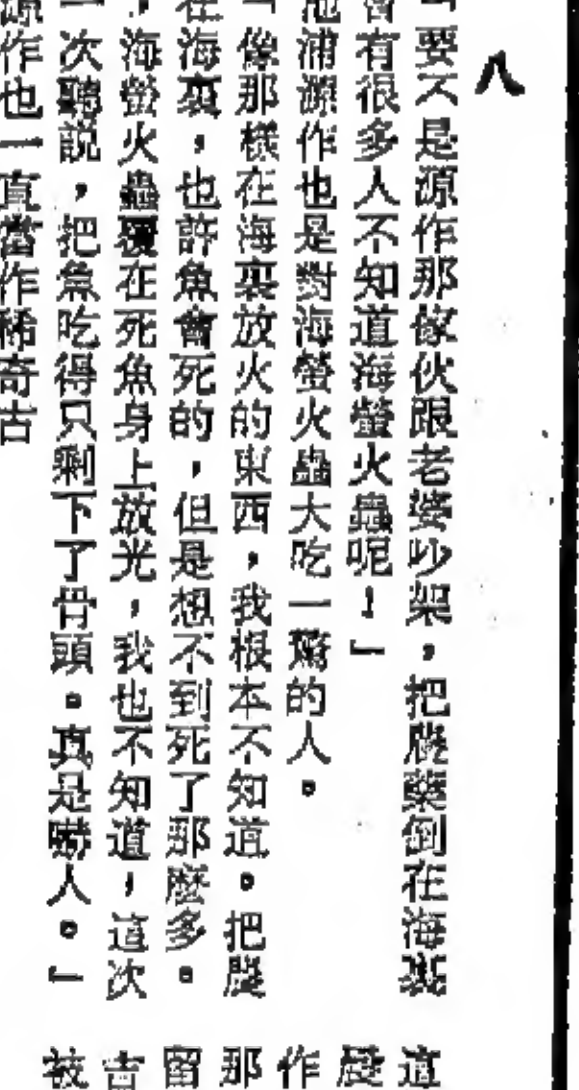 八
「要不是源作那傢伙跟老婆吵架，把農藥倒在海裏
會有很多人不知道海螢火蟲呢！」
池浦源作也是對海螢火蟲大吃一驚的人。
「像那樣在海裏放火的東西，我根本不知道。把農
在海裏，也許魚會死的，但是想不到死了那麼多。
，海螢火蟲覆在死魚身上放光，我也不知道，這次
一次聽說，把魚吃得只剩下了骨頭。真是嚇人。」
源作也一直當作稀奇古
這
農
作
那
留
吉
被